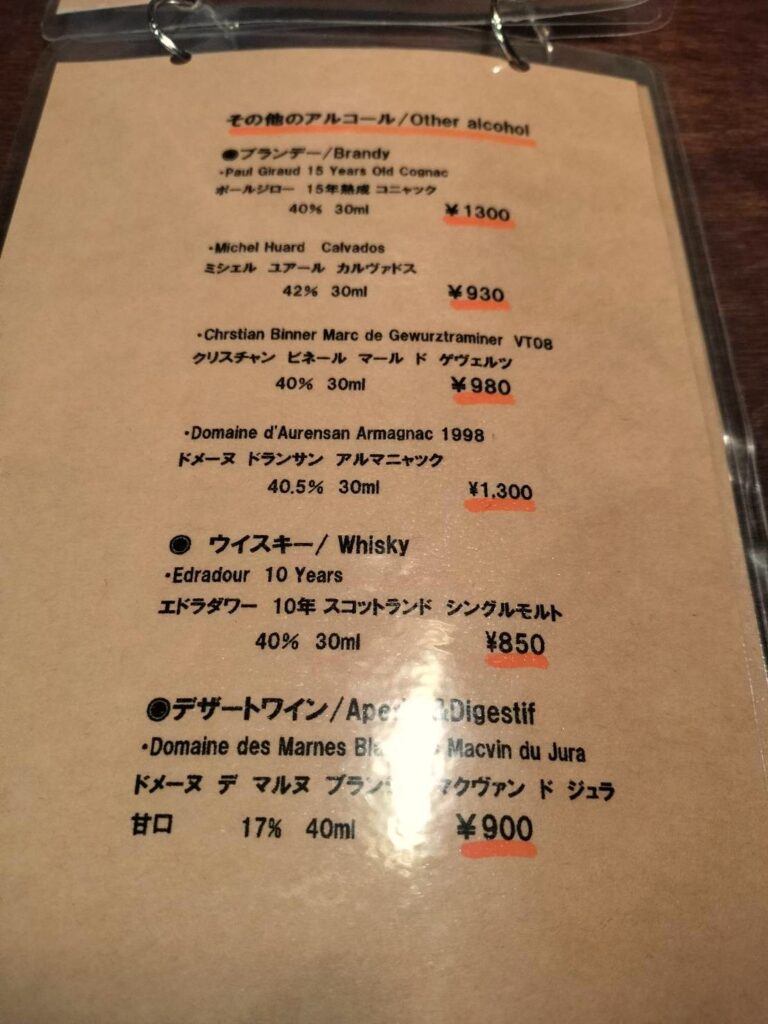 その他のアルコール/Other alcohol
●ブランデー/Brandy
・Paul Giraud 15 Years Old Cognac
ポールジロー 15年熟成 コニャック
40% 30ml ¥1300
・Michel Huard Calvados
ミシェル ユアール カルヴァドス
42% 30ml ¥930
・Chrstian Binner Marc de Gewurztraminer VT08
クリスチャン ビネール マール ド ゲヴェルツ
40% 30ml ¥980
・Domaine d'Aurensan Armagnac 1998
ドメーヌ ドランサン アルマニャック
40.5% 30ml ¥1,300
◉ ウイスキー/ Whisky
・Edradour 10 Years
エドラダワー 10年 スコットランド シングルモルト
40% 30ml ¥850
◉デザートワイン/ &Digestif
・Domaine des Marnes Macvin du Jura
ドメーヌ デ マルヌ マクヴァン ド ジュラ
甘口 17% 40ml ¥900